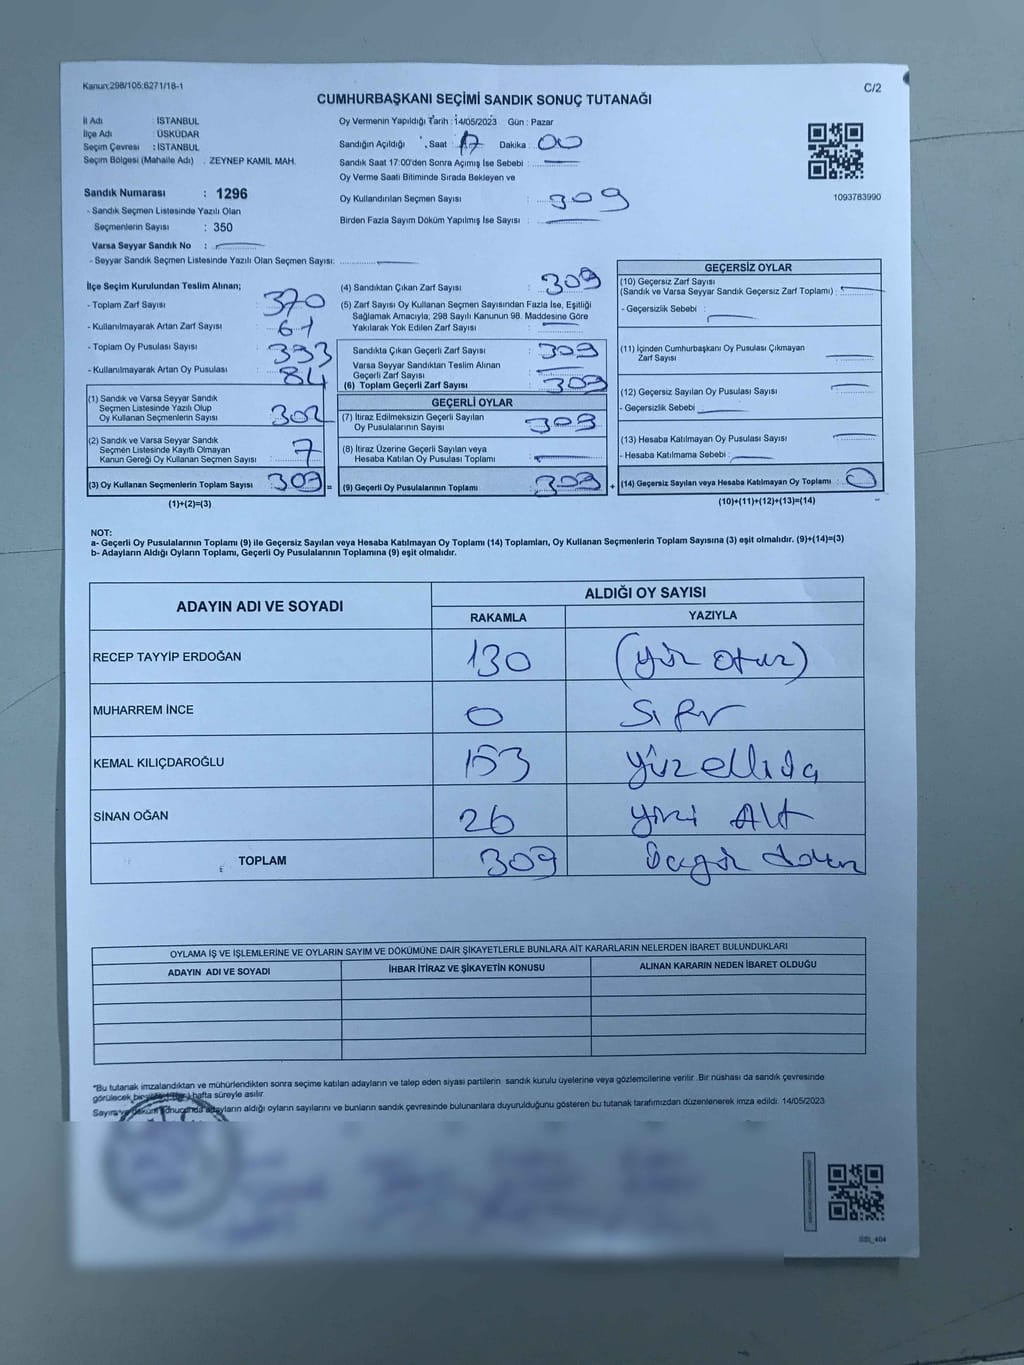 Kanun:298/105;6271/18-1
C/2
CUMHURBAŞKANI SEÇİMİ SANDIK SONUÇ TUTANAĞI
İl Adı : İSTANBUL
İlçe Adı : ÜSKÜDAR
Seçim Çevresi : İSTANBUL
Seçim Bölgesi (Mahalle Adı) . ZEYNEP KAMİL MAH.
Sandık Numarası : 1296
- Sandık Seçmen Listesinde Yazılı Olan
Seçmenlerin Sayısı : 350
Varsa Seyyar Sandık No :
- Seyyar Sandık Seçmen Listesinde Yazılı Olan Seçmen Sayısı:
Oy Vermenin Yapıldığı Tarih : 14/05/2023 Gün : Pazar
Sandığın Açıldığı Saat 17 Dakika 00
Sandık Saat 17:00'den Sonra Açımış İse Sebebi :
Oy Verme Saati Bitiminde Sırada Bekleyen ve
Oy Kullandırılan Seçmen Sayısı : 309
Birden Fazla Sayım Döküm Yapılmış İse Sayısı :
1093783990
İlçe Seçim Kurulundan Teslim Alınan;
- Toplam Zarf Sayısı : 370
- Kullanılmayarak Artan Zarf Sayısı : 61
- Toplam Oy Pusulası Sayısı : 393
- Kullanılmayarak Artan Oy Pusulası : 84
(1) Sandık ve Varsa Seyyar Sandık
Seçmen Listesinde Yazılı Olup
Oy Kullanan Seçmenlerin Sayısı : 302
(2) Sandık ve Varsa Seyyar Sandık
Seçmen Listesinde Kayıtlı Olmayan
Kanun Gereği Oy Kullanan Seçmen Sayısı : 7
(3) Oy Kullanan Seçmenlerin Toplam Sayısı : 309 =
(1)+(2)=(3)
(4) Sandıktan Çıkan Zarf Sayısı : 309
(5) Zarf Sayısı Oy Kullanan Seçmen Sayısından Fazla İse, Eşitliği
Sağlamak Amacıyla; 298 Sayılı Kanunun 98. Maddesine Göre
Yakılarak Yok Edilen Zarf Sayısı :
Sandıkta Çıkan Geçerli Zarf Sayısı : 309
Varsa Seyyar Sandıktan Teslim Alınan
Geçerli Zarf Sayısı :
(6) Toplam Geçerli Zarf Sayısı : 309
GEÇERLİ OYLAR
(7) İtiraz Edilmeksizin Geçerli Sayılan
Oy Pusulalarının Sayısı : 309
(8) İtiraz Üzerine Geçerli Sayılan veya
Hesaba Katılan Oy Pusulası Toplamı :
(9) Geçerli Oy Pusulalarının Toplamı : 309 +
GEÇERSİZ OYLAR
(10) Geçersiz Zarf Sayısı
(Sandık ve Varsa Seyyar Sandık Geçersiz Zarf Toplamı) :
- Geçersizlik Sebebi :
(11) İçinden Cumhurbaşkanı Oy Pusulası Çıkmayan
Zarf Sayısı :
(12) Geçersiz Sayılan Oy Pusulası Sayısı :
- Geçersizlik Sebebi :
(13) Hesaba Katılmayan Oy Pusulası Sayısı :
- Hesaba Katılmama Sebebi :
(14) Geçersiz Sayılan veya Hesaba Katılmayan Oy Toplamı : 0
(10)+(11)+(12)+(13)=(14)
NOT:
a- Geçerli Oy Pusulalarının Toplamı (9) ile Geçersiz Sayılan veya Hesaba Katılmayan Oy Toplamı (14) Toplamları, Oy Kullanan Seçmenlerin Toplam Sayısına (3) eşit olmalıdır. (9)+(14)=(3)
b- Adayların Aldığı Oyların Toplamı, Geçerli Oy Pusulalarının Toplamına (9) eşit olmalıdır.
ADAYIN ADI VE SOYADI ALDIĞI OY SAYISI
RAKAMLA YAZIYLA
RECEP TAYYİP ERDOĞAN 130 (yüz otuz)
MUHARREM İNCE 0 Sıfır
KEMAL KILIÇDAROĞLU 153
SİNAN OĞAN 26
TOPLAM 309
OYLAMA İŞ VE İŞLEMLERİNE VE OYLARIN SAYIM VE DÖKÜMÜNE DAİR ŞİKAYETLERLE BUNLARA AİT KARARLARIN NELERDEN İBARET BULUNDUKLARI
ADAYIN ADI VE SOYADI İHBAR İTİRAZ VE ŞİKAYETİN KONUSU ALINAN KARARIN NEDEN İBARET OLDUĞU
*Bu tutanak imzalandıktan ve mühürlendikten sonra seçime katılan adayların ve talep eden siyasi partilerin sandık kurulu üyelerine veya gözlemcilerine verilir. Bir nüshası da sandık çevresinde
görülecek bir hafta süreyle asılır.
Sayım ve döküm sonucunda adayların aldığı oyların sayılarını ve bunların sandık çevresinde bulunanlara duyurulduğunu gösteren bu tutanak tarafımızdan düzenlenerek imza edildi. 14/05/2023
SSI_404